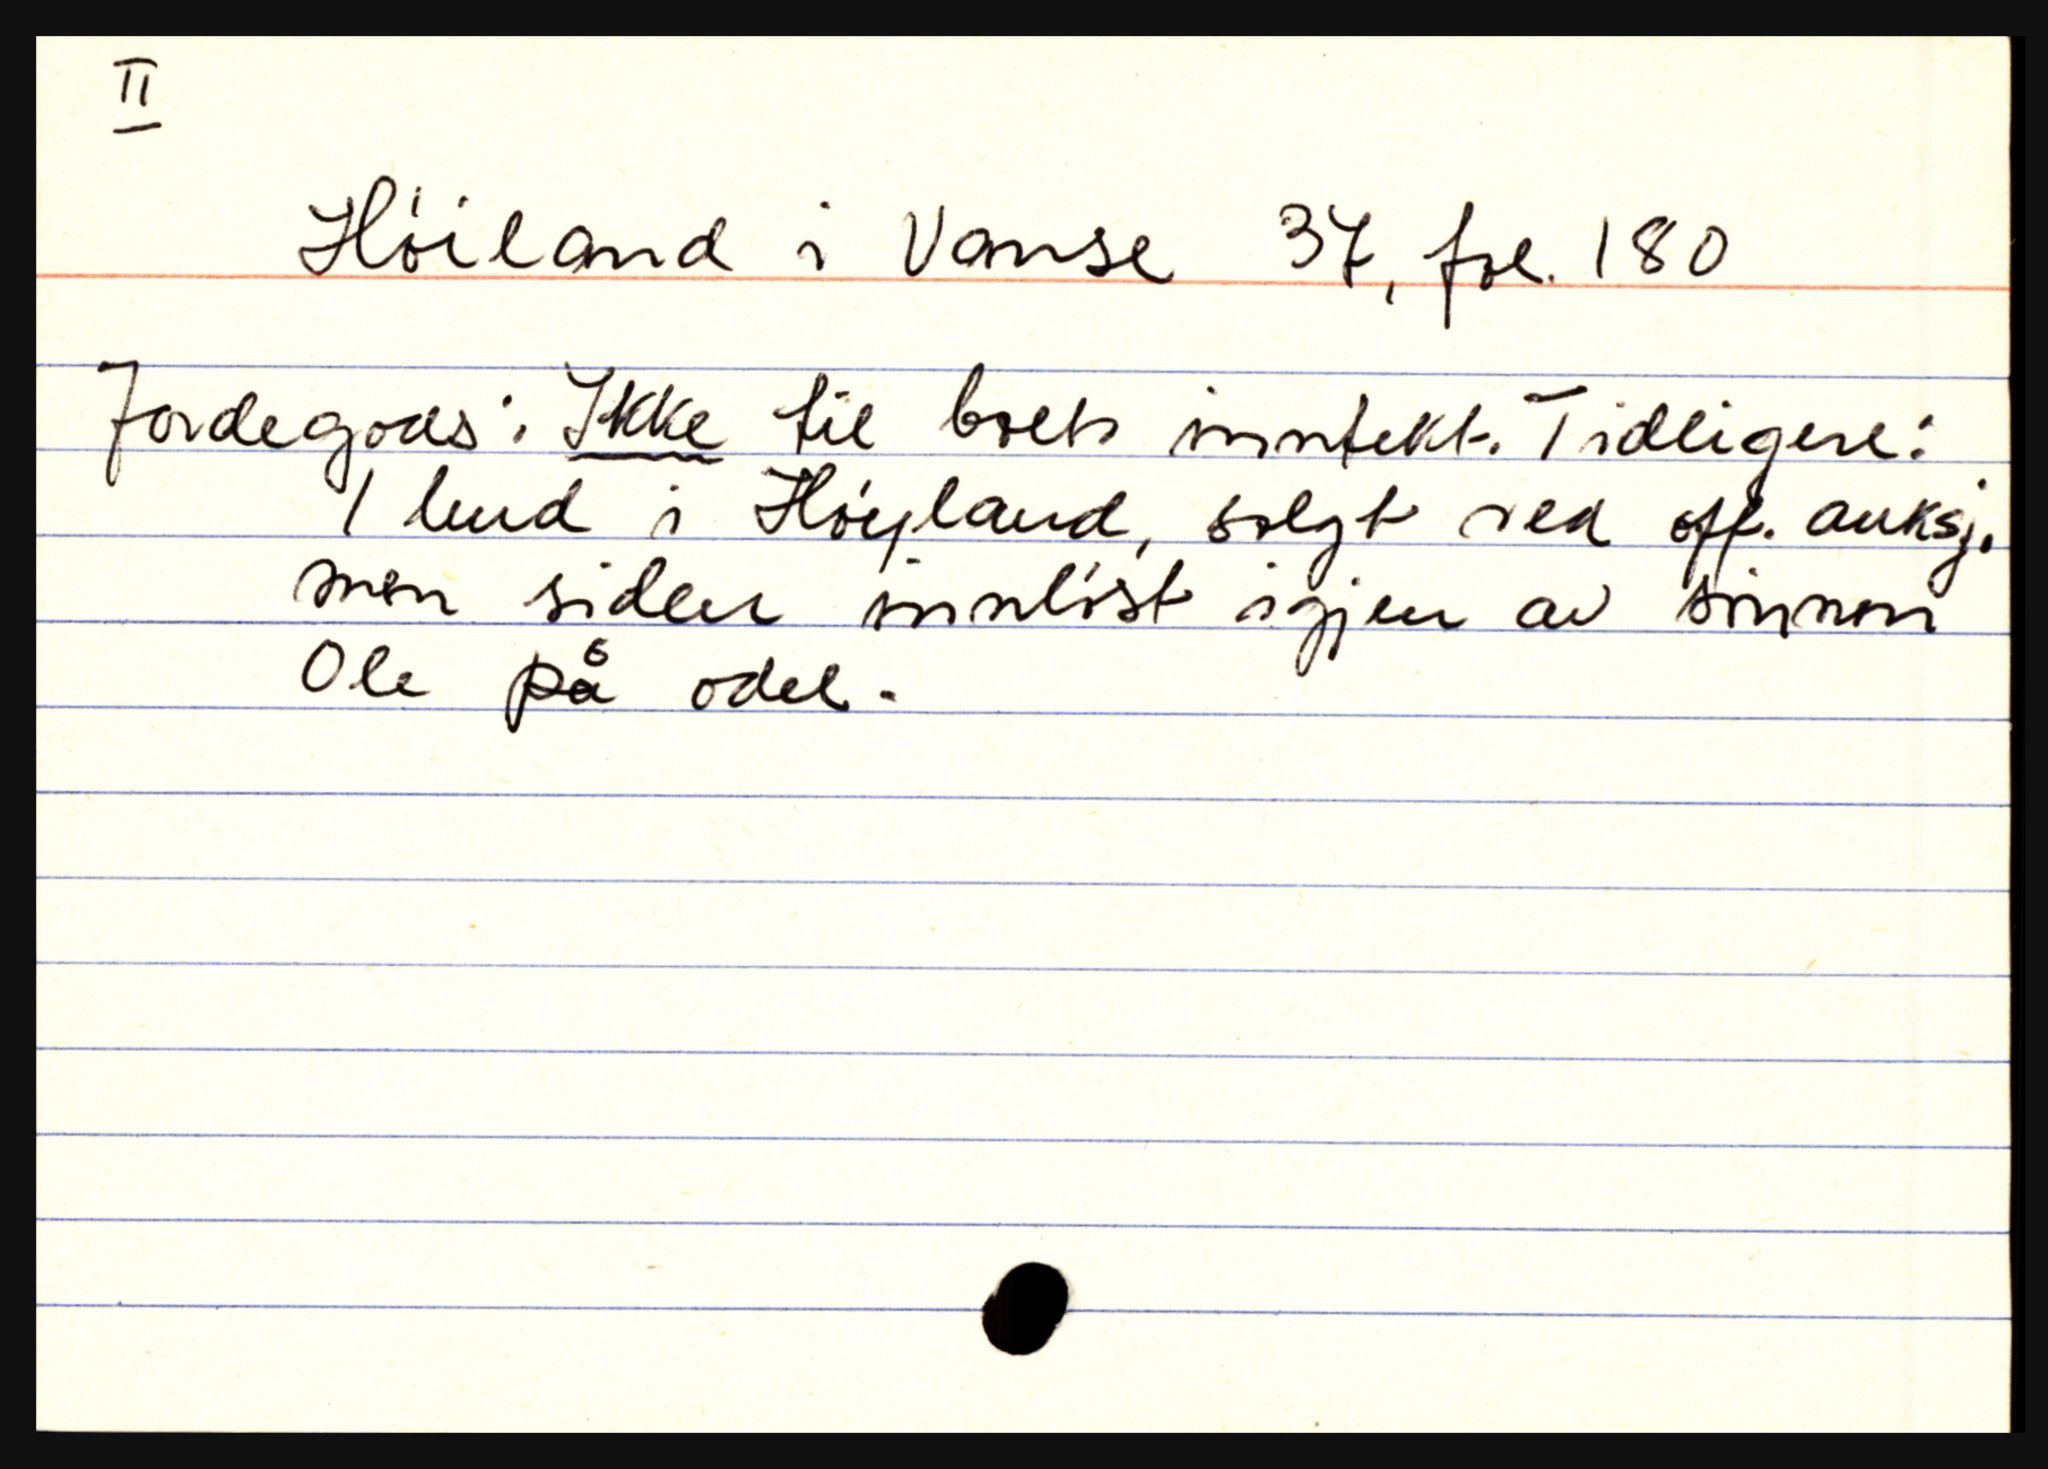 II
Høiland i Vanse 37, fol. 180
Jordegods: Ikke til boets inntekt. Tidligere:
1 hud i Høyland, solgt ved off. auksj.
men siden innløst igjen av sønnen
Ole på odel.